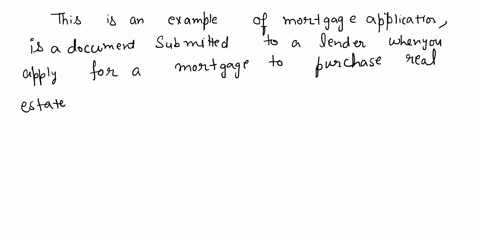 This is an example of mortgage application,
is a document Submitted to a lender when you
apply for a mortgage to purchase real
estate